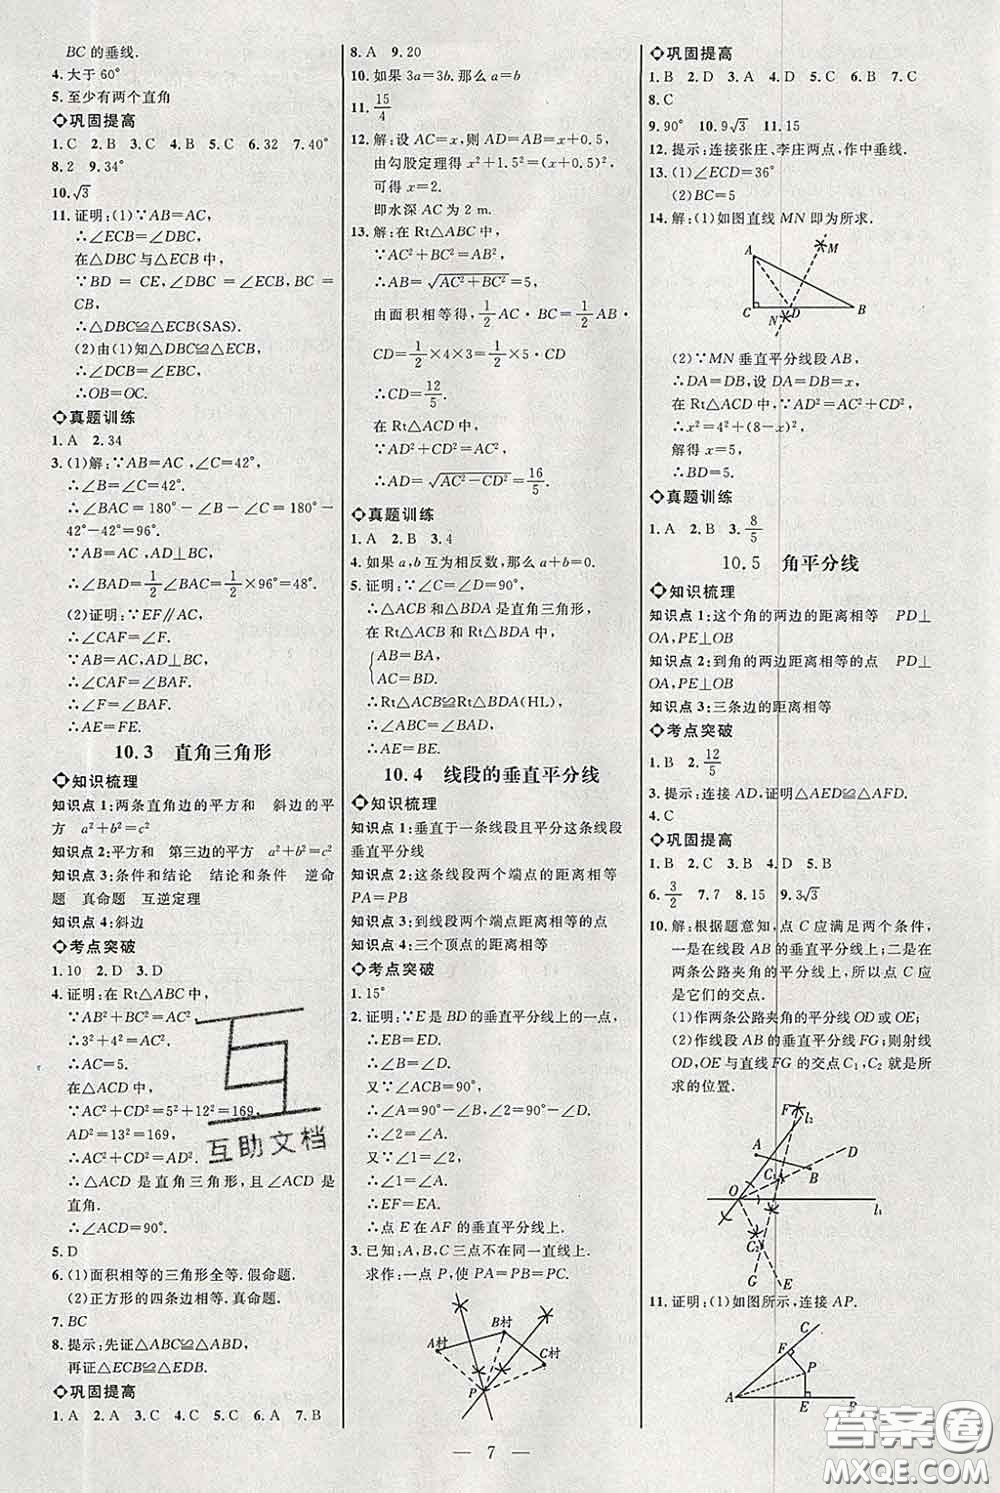 BC的垂线.
4.大于60°
5.至少有两个直角
巩固提高
1.C 2.B 3.C 4.B 5.C 6.32 7.40°
8.2 9.34°
10.√3
11.证明:(1)∵AB=AC,
∴∠ECB=∠DBC,
在△DBC与△ECB中,
∵BD=CE,∠DBC=∠ECB,BC=
CB,
∴△DBC≌△ECB(SAS).
(2)由(1)知△DBC≌△ECB,
∴∠DCB=∠EBC,
∴OB=OC.
真题训练
1.A 2.34
3.(1)解:∵AB=AC,∠C=42°,
∴∠B=∠C=42°.
∴∠BAC=180°-∠B-∠C=180°-
42°-42°=96°.
∵AB=AC,AD⊥BC,
∴∠BAD=1/2∠BAC=1/2×96°=48°.
(2)证明:∵EF∥AC,
∴∠CAF=∠F.
∵AB=AC,AD⊥BC,
∴∠CAF=∠BAF.
∴∠F=∠BAF.
∴AE=FE.
10.3 直角三角形
知识梳理
知识点1:两条直角边的平方和 斜边的平
方 a²+b²=c²
知识点2:平方和 第三边的平方 a²+b²=c²
知识点3:条件和结论 结论和条件 逆命
题 真命题 互逆定理
知识点4:斜边
考点突破
1.10 2.D 3.D
4.证明:在Rt△ABC中,
∵AB²+BC²=AC²,
∴3²+4²=AC²,
∴AC=5.
在△ACD中,
∵AC²+CD²=5²+12²=169,
AD²=13²=169,
∴AC²+CD²=AD².
∴△ACD是直角三角形,且∠ACD是
直角.
∴∠ACD=90°.
5.D
6.(1)面积相等的三角形全等.假命题.
(2)正方形的四条边相等.真命题.
7.BC
8.提示:先证△ABC≌△ABD,
再证△ECB≌△EDB.
巩固提高
1.A 2.A 3.C 4.C 5.C 6.A 7.B
8.A 9.20
10.如果3a=3b.那么a=b
11.15/4
12.解:设AC=x,则AD=AB=x+0.5,
由勾股定理得x²+1.5²=(x+0.5)²,
可得x=2.
即水深AC为2 m.
13.解:在Rt△ABC中,
∵AC²+BC²=AB²,
∴AB=√AC²+BC²=5,
由面积相等得,1/2AC·BC=1/2AB·
CD=1/2×4×3=1/2×5·CD
∴CD=12/5.
在Rt△ACD中,
∵AD²+CD²=AC²,
∴AD=√AC²-CD²=16/5.
真题训练
1.A 2.B 3.4
4.如果a,b互为相反数,那么a+b=0.
5.证明:∵∠C=∠D=90°,
∴△ACB和△BDA是直角三角形,
在Rt△ACB和Rt△BDA中,
{AB=BA,
AC=BD.
∴Rt△ACB≌Rt△BDA(HL),
∴∠ABC=∠BAD,
∴AE=BE.
10.4 线段的垂直平分线
知识梳理
知识点1:垂直于一条线段且平分这条线段
垂直平分线
知识点2:这条线段两个端点的距离相等
PA=PB
知识点3:到线段两个端点距离相等的点
知识点4:三个顶点的距离相等
考点突破
1.15°
2.证明:∵E是BD的垂直平分线上的一点,
∴EB=ED.
∴∠B=∠D.
又∵∠ACB=90°,
∴∠A=90°-∠B,∠1=90°-∠D.
∴∠1=∠A.
又∵∠2=∠1,
∴∠2=∠A.
∴EF=EA.
∴点E在AF的垂直平分线上.
3.已知:A,B,C三点不在同一直线上.
求作:一点P,使PA=PB=PC.
B村
A村
C村
P
巩固提高
1.B 2.D 3.A 4.D 5.B 6.D 7.C
8.C
9.90° 10.9√3 11.15
12.提示:连接张庄、李庄两点,作中垂线.
13.(1)∠ECD=36°
(2)BC=5
14.解:(1)如图直线MN即为所求.
A
M
C
N
D
B
(2)∵MN垂直平分线段AB,
∴DA=DB,设DA=DB=x,
在Rt△ACD中,∵AD²=AC²+CD²,
∴x²=4²+(8-x)²,
解得x=5,
∴BD=5.
真题训练
1.A 2.B 3.8/5
10.5 角平分线
知识梳理
知识点1:这个角的两边的距离相等 PD⊥
OA,PE⊥OB
知识点2:到角的两边距离相等的点 PD⊥
OA,PE⊥OB
知识点3:三条边的距离相等
考点突破
1.B 2.12/5
3.提示:连接AD,证明△AED≌△AFD.
4.C
巩固提高
1.B 2.C 3.B 4.D 5.B
6.3/2 7.7 8.15 9.3√3
10.解:根据题意知,点C应满足两个条件,
一是在线段AB的垂直平分线上;二是在
两条公路夹角的平分线上,所以点C应
是它们的交点.
(1)作两条公路夹角的平分线OD或OE;
(2)作线段AB的垂直平分线FG;则射线
OD,OE与直线FG的交点C₁,C₂就是所
求的位置.
F
l₂
A
D
C₁
B
O
l₁
C₂
G
E
11.证明:(1)如图所示,连接AP.
C
F
P
A
E
B
— 7 —
互助文档
答案圈
MXQE.COM